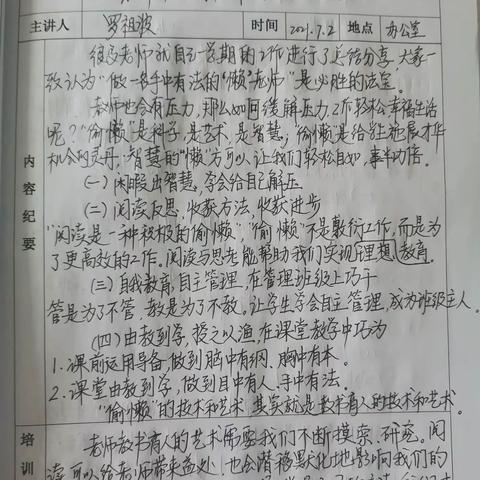 主讲人 罗祖波 时间 2021.7.2 地点 办公室
很多老师就自己一学期的工作进行了总结分享。大家一
致认为“做一名手中有法的“懒”老师”是必胜的法宝。
老师也会有压力,那么如何缓解压力,工作轻松幸福生活
呢?“偷懒”是科学,是艺术,是智慧;“偷懒”是给学生施展才华
机会的灵丹;智慧的“懒”方可以让我们轻松自如,事半功倍。
内容纪要
(一)闲暇出智慧,学会给自己解压
(二)阅读反思,收获方法,收获进步
“阅读是一种积极的偷懒”,“偷懒”不是敷衍工作,而是为
了更高效的工作。阅读与思考能帮助我们实现理想教育。
(三)自我教育,自主管理,在管理班级上巧干
管是为了不管,教是为了不教。让学生学会自主管理,成为班级主人。
(四)由教到学,授之以渔,在课堂教学中巧为
1.课前运用导备,做到脑中有纲、胸中有本。
2.课堂由教到学,做到目中有人、手中有法。
“偷懒”的技术和艺术,其实就是教书育人的技术和艺术。
培训
老师教书育人的艺术需要我们不断摸索、研究。阅
读可以给老师带来益处,也会潜移默化地影响我们的